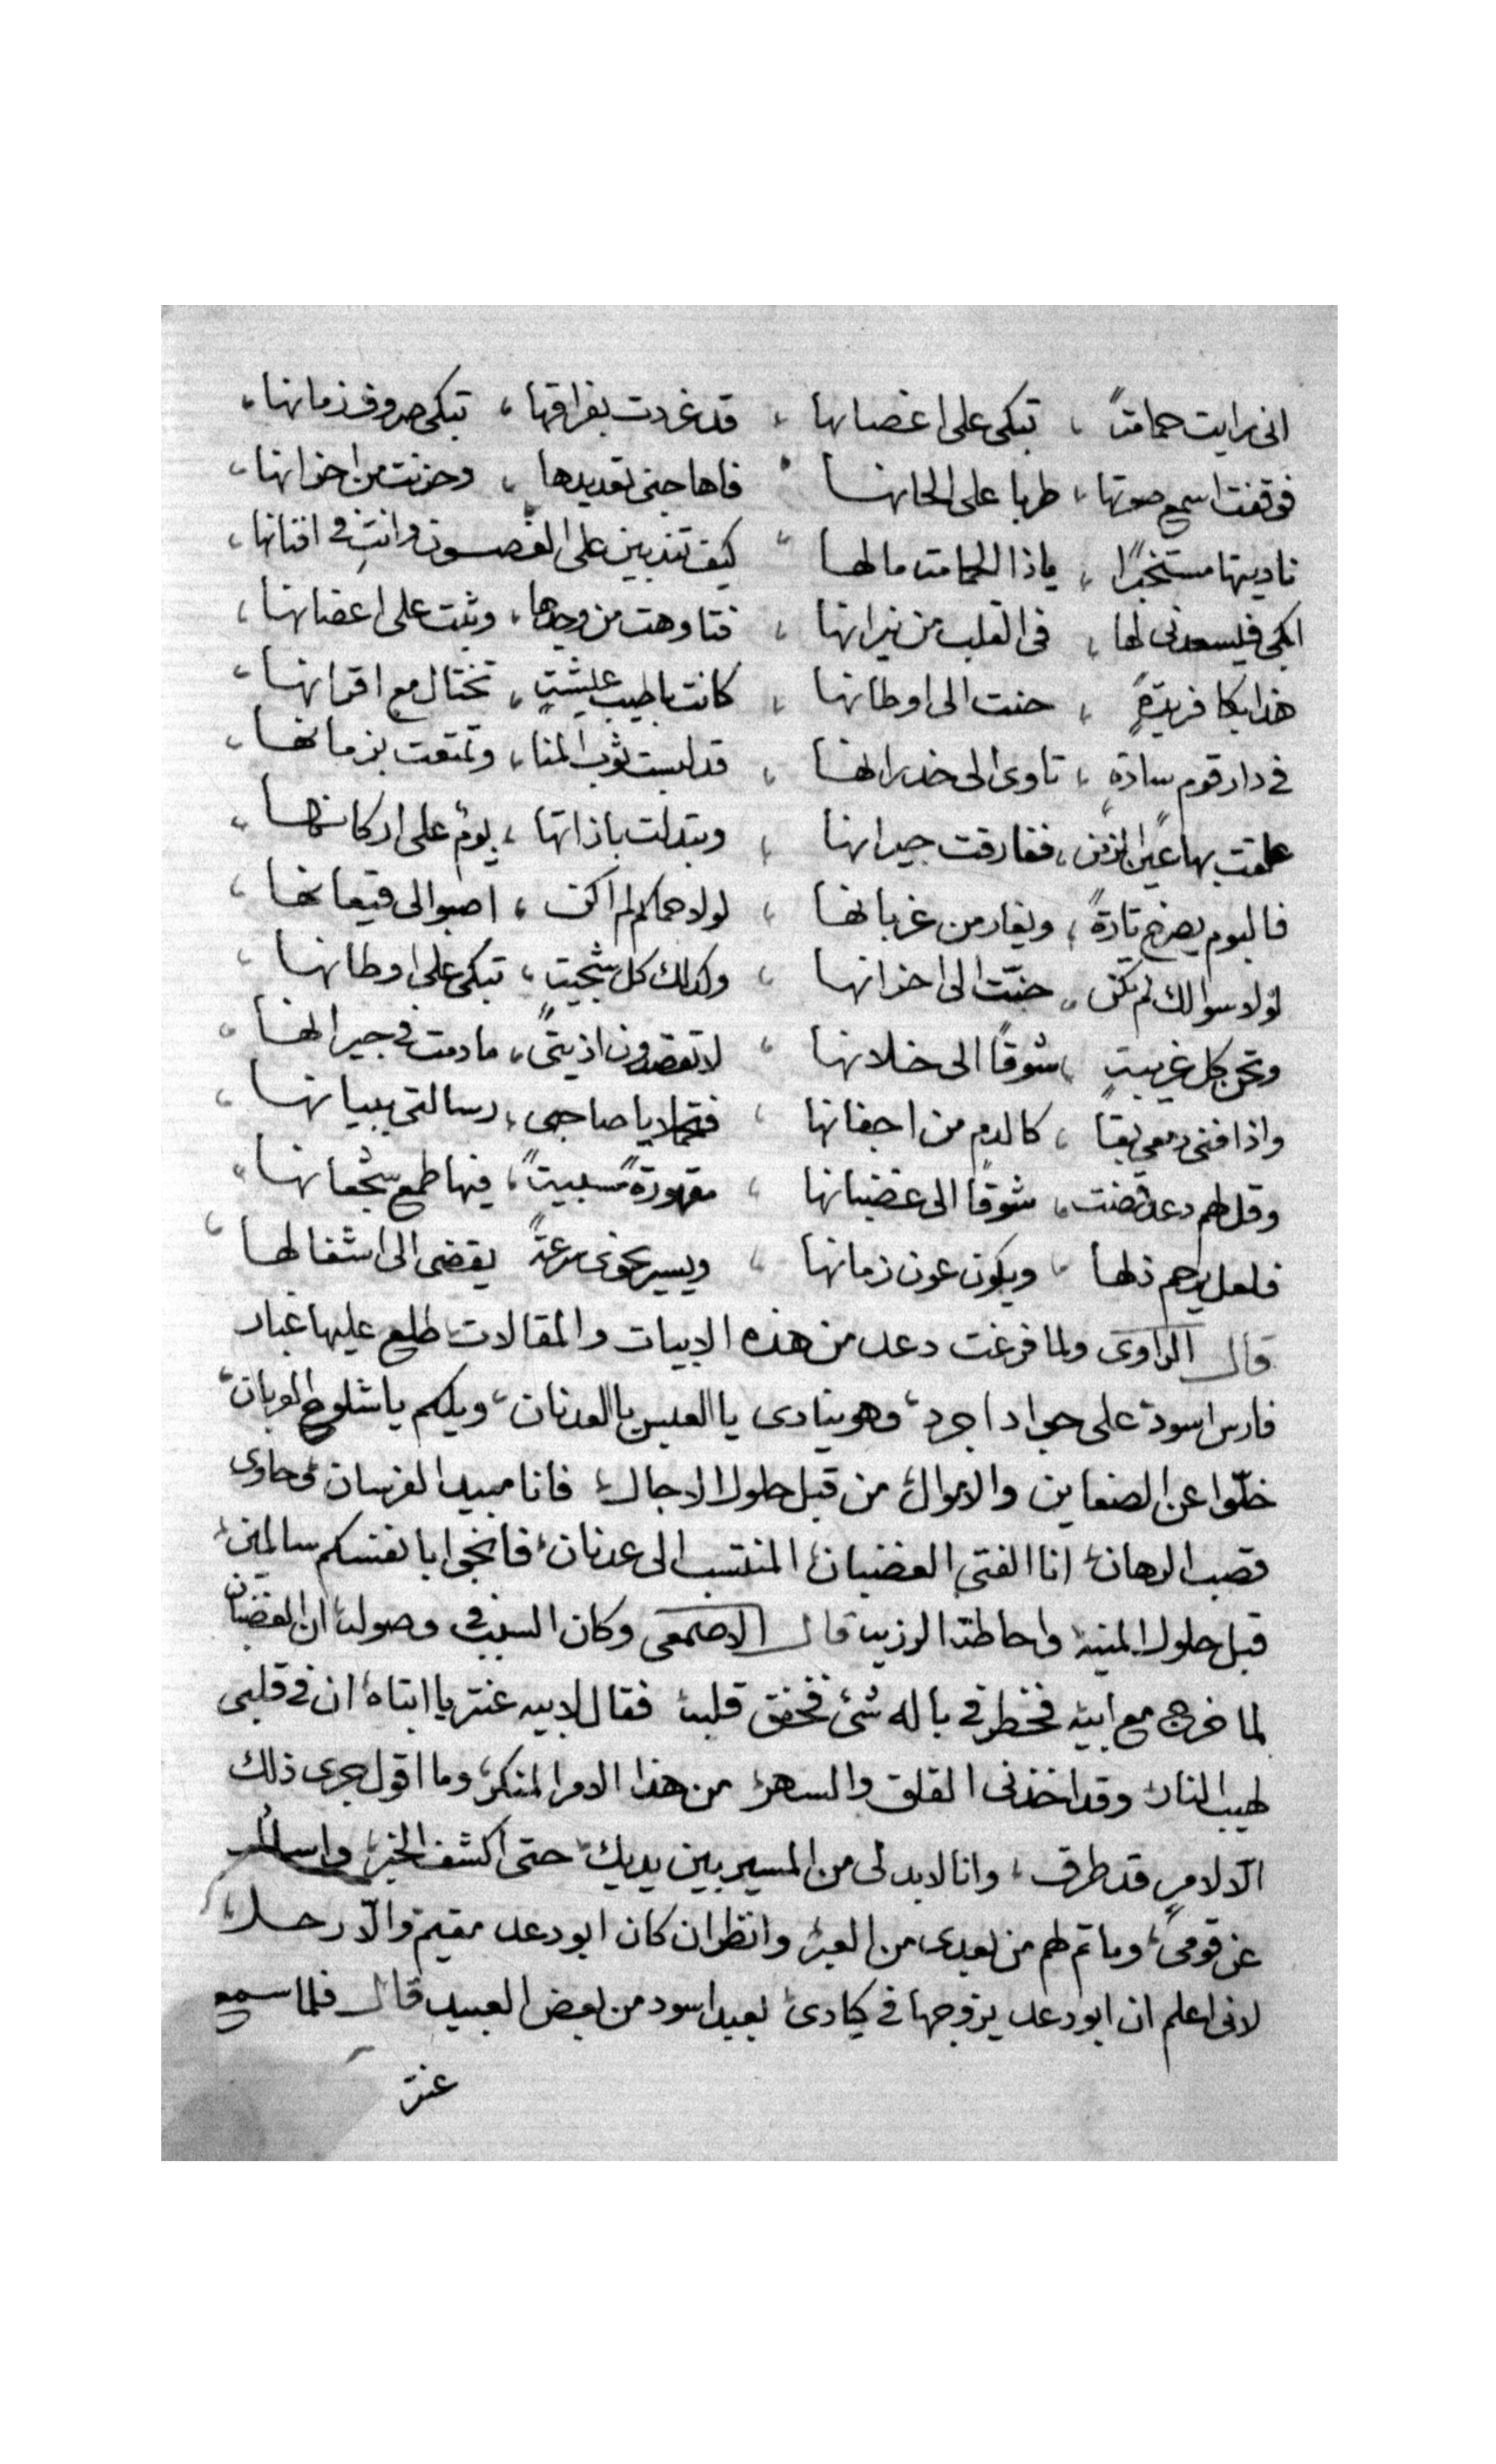 انى رايت حمامةً ، تبكى على اغصانها ، قد غردت بفراقها ، تبكى صروف زمانها ،
فوقفت اسمع صوتها ، طربا على الحانها ، فاهاجنى تعديدها ، وحزنت من احزانها ،
ناديتها مستخبرًا ، ماذا الحمامة مالها ، كيف تندبين على الغصون وانتِ فى افنانها ،
ابكى فيسعدنى لها ، فى القلب من نيرانها ، فتاوهت من وجدها ، وبثت على اغصانها ،
هذا بكا فريدةٍ ، حنت الى اوطانها ، كانت باطيب عيشةٍ ، تختال مع اقرانها ،
فى دار قوم سادةٍ ، تاوى الى خدرانها ، قد لبست ثوب المنا ، وتمتعت بزمانها ،
علقت بها عين الزمن ، ففارقت جيرانها ، وبتدلت باذاتها ، بومٌ على اركانها ،
فالبوم يصرخ تارةً ، ويغار من غربانها ، لولا حماكم لم اكن ، اصبوا الى قيعانها ،
لولا سوالك لم تكن ، حنّت الى احزانها ، وكذلك كل شجيةٍ ، تبكى على اوطانها ،
وتحن كل غريبةٍ ، شوقًا الى خلانها ، لا تقصدون اذيتى ، ما دمت فى جيرانها ،
واذا فنى دمعى بقا ، كالدم من اجفانها ، فتحملا يا صاحبى ، رسالتى ببيانها ،
وقل لهم دعد ضنت ، شوقًا الى غضبانها ، مقهورةً مسبيةً ، فيها طمع شجعانها ،
فلعل يرحم ذلها ، ويكون عون زمانها ، ويسير نحوى سرعةً يقضى الى اشغالها ،
قال الراوى ولما فرغت دعد من هذه الابيات والمقالات طلع عليها غبار
فارس اسود على جواد اجرد وهو ينادى يا العبس يا العدنان ويلكم يا شلوح العربان
خلّوا عن الضعاين والاموال من قبل حلول الاجال فانا مبيد الفرسان وحاوى
قصب الرهان انا الفتى الغضبان المنتسب الى عدنان فانجوا بانفسكم سالمين
قبل حلول المنيه واحاطة الرزيه قال الاصمعى وكان السبب فى وصوله ان الغضبان
لما خرج مع ابيه فخطر فى باله شئ فخفق قلبه فقال لابيه عنتر يا ابتاه ان فى قلبى
لهيب النار وقد اخذنى القلق والسهر من هذا الامر المنكر وما اقول جرى ذلك
الّا لامرٍ قد طرق ، وانا لا بد لى من المسير بين يديك حتى اكشف الخبر واسال
عن قومى وما تم لهم من بعدى من العبر وانظر ان كان ابو دعد مقيم والّا رحل
لانى اعلم ان ابو دعد يزوجها فى كيادى لعبد اسود من بعض العبيد قال فلما سمع
عنتر